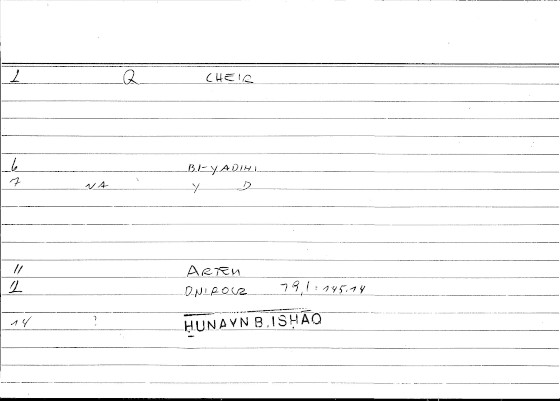 1 Q CHEIR
6 BI-YADIHI
7 NA Y D
11 ARTEM
12 ONIROCR 79,1 = 145.14
14 ? ḤUNAYN B. ISḤAQ